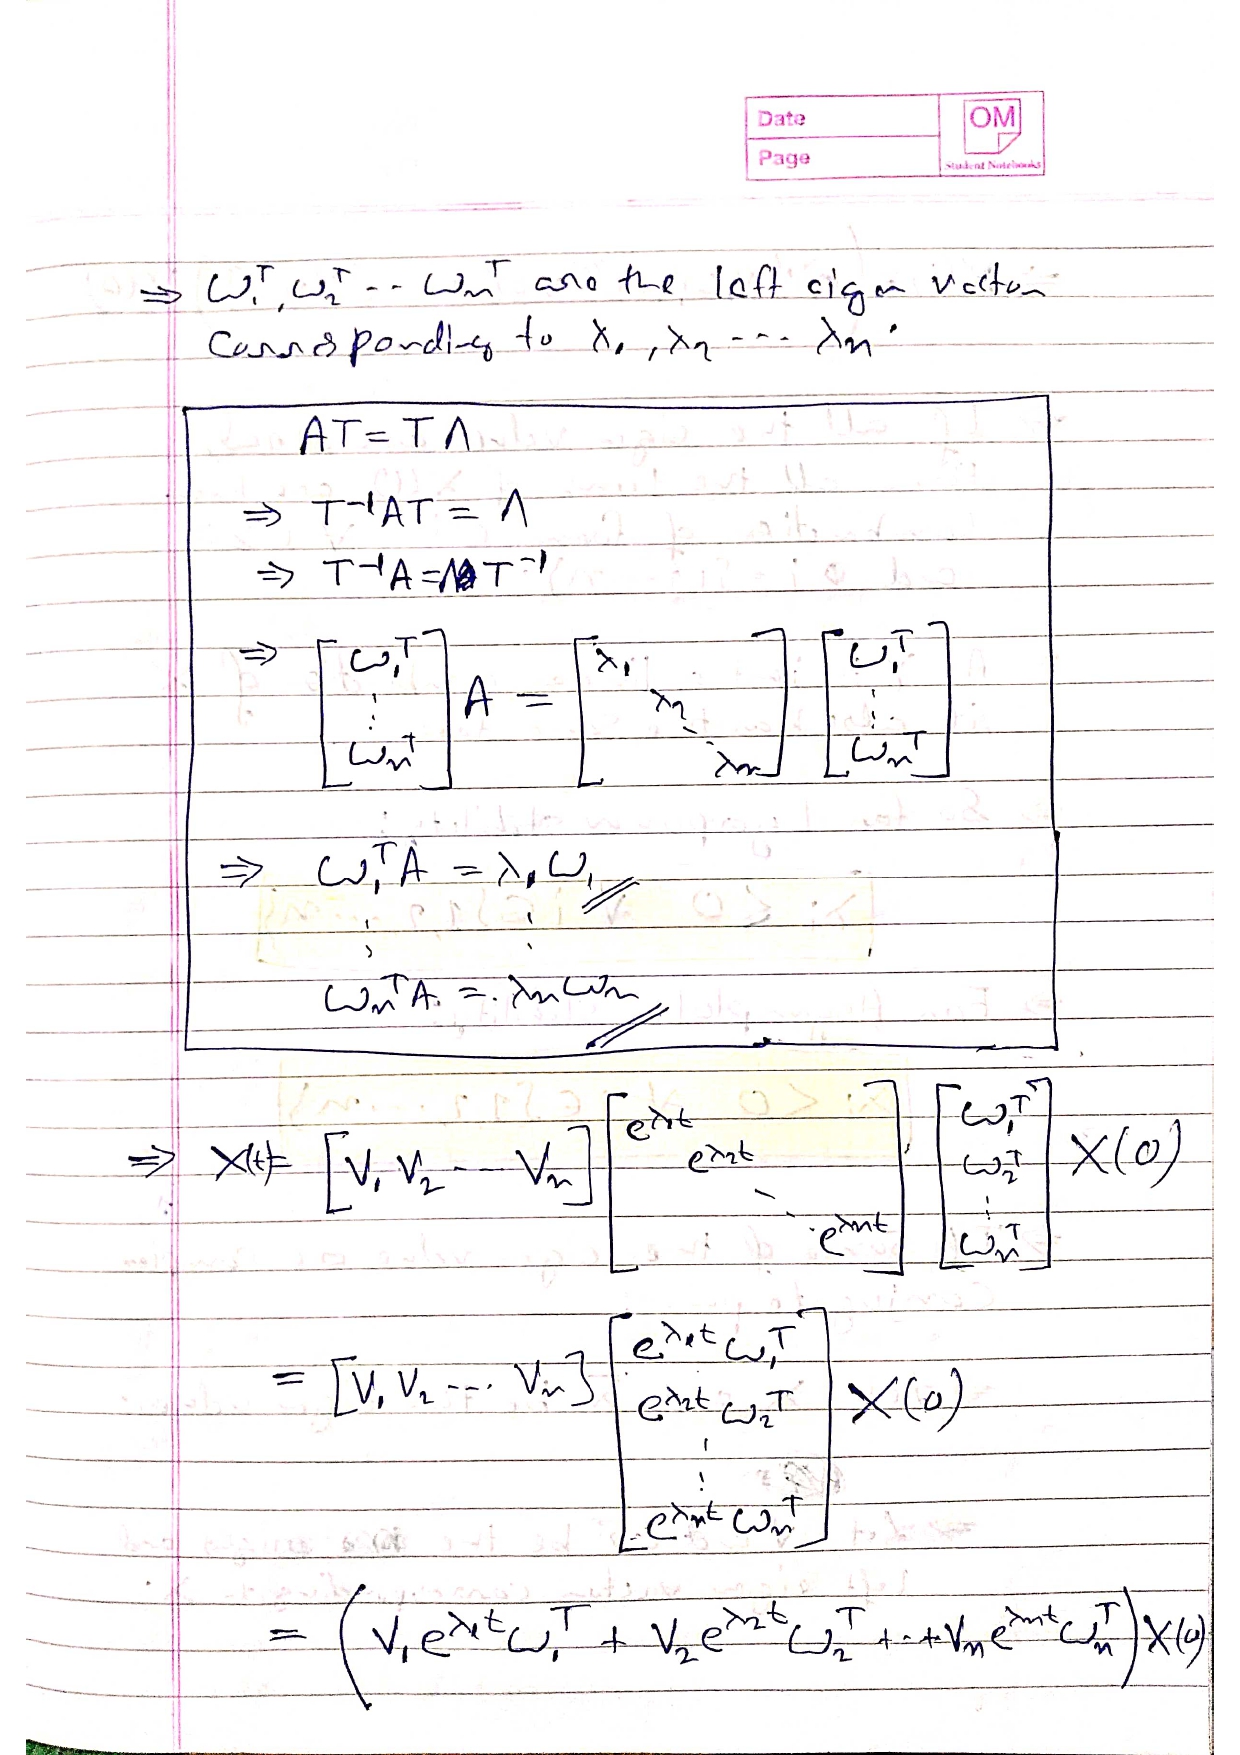 Date
Page
OM
Student Notebooks
⇒ ω₁ᵀ, ω₂ᵀ -- ωₙᵀ are the left eigen vector
corresponding to λ₁, λ₂ --- λₙ.
AT = TΛ
⇒ T⁻¹AT = Λ
⇒ T⁻¹A = ΛT⁻¹
⇒ [ω₁ᵀ ⋮ ωₙᵀ] A = [λ₁ λ₂ ⋱ λₙ] [ω₁ᵀ ⋮ ωₙᵀ]
⇒ ω₁ᵀA = λ₁ω₁
⋮ ⋮
ωₙᵀA = λₙωₙ
⇒ X(t) = [V₁ V₂ --- Vₙ] [e^λ₁t e^λ₂t ⋱ e^λₙt] [ω₁ᵀ ω₂ᵀ ⋮ ωₙᵀ] X(0)
= [V₁ V₂ --- Vₙ] [e^λ₁t ω₁ᵀ e^λ₂t ω₂ᵀ ⋮ e^λₙt ωₙᵀ] X(0)
= (V₁e^λ₁t ω₁ᵀ + V₂e^λ₂t ω₂ᵀ + ·· + Vₙe^λₙt ωₙᵀ) X(0)